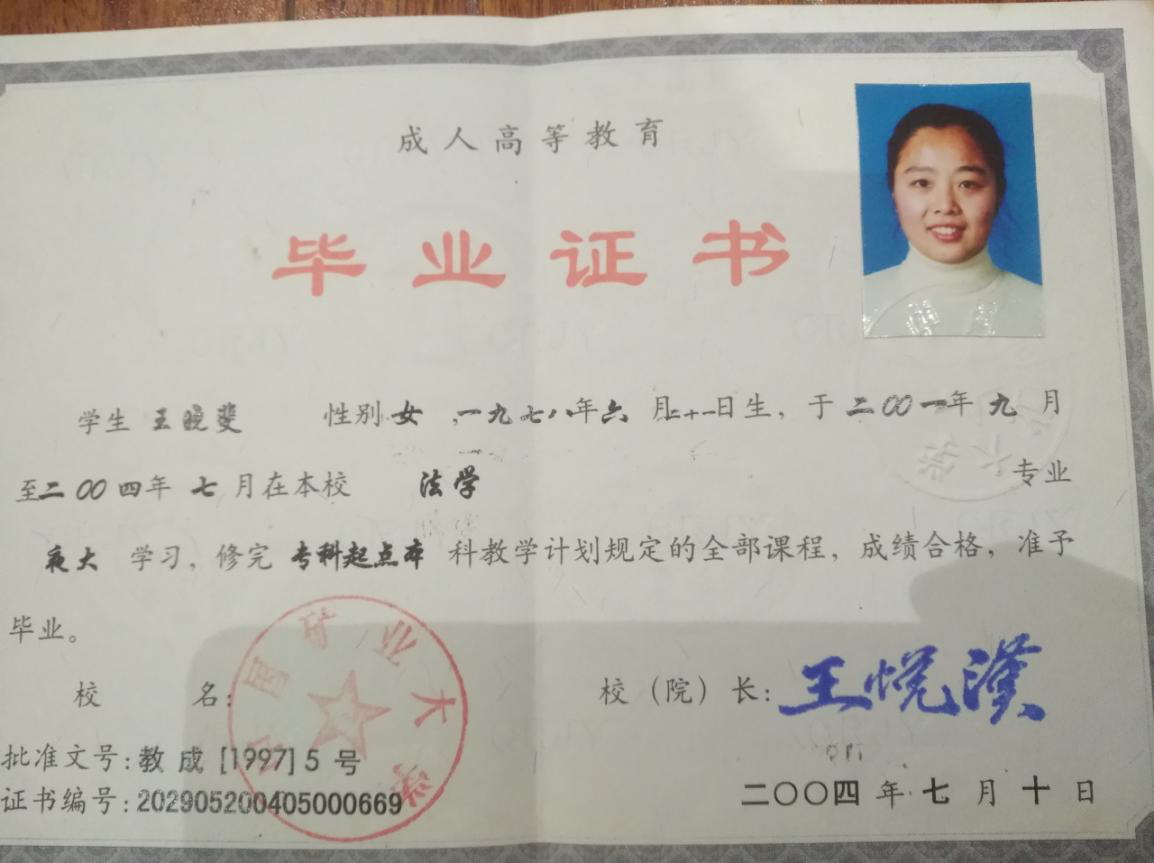 成人高等教育
毕业证书
学生 王晓斐 性别 女 ,一九七八年六 月二十一日生, 于二〇〇一年九 月
至二〇〇四年 七 月在本校 法学 专业
夜大 学习, 修完 专科起点本 科教学计划规定的全部课程, 成绩合格, 准予
毕业。
校 名: 中国矿业大学
校(院)长: 王悦汉
批准文号: 教成[1997]5号
证书编号: 202905200405000669
二〇〇四年七月十日